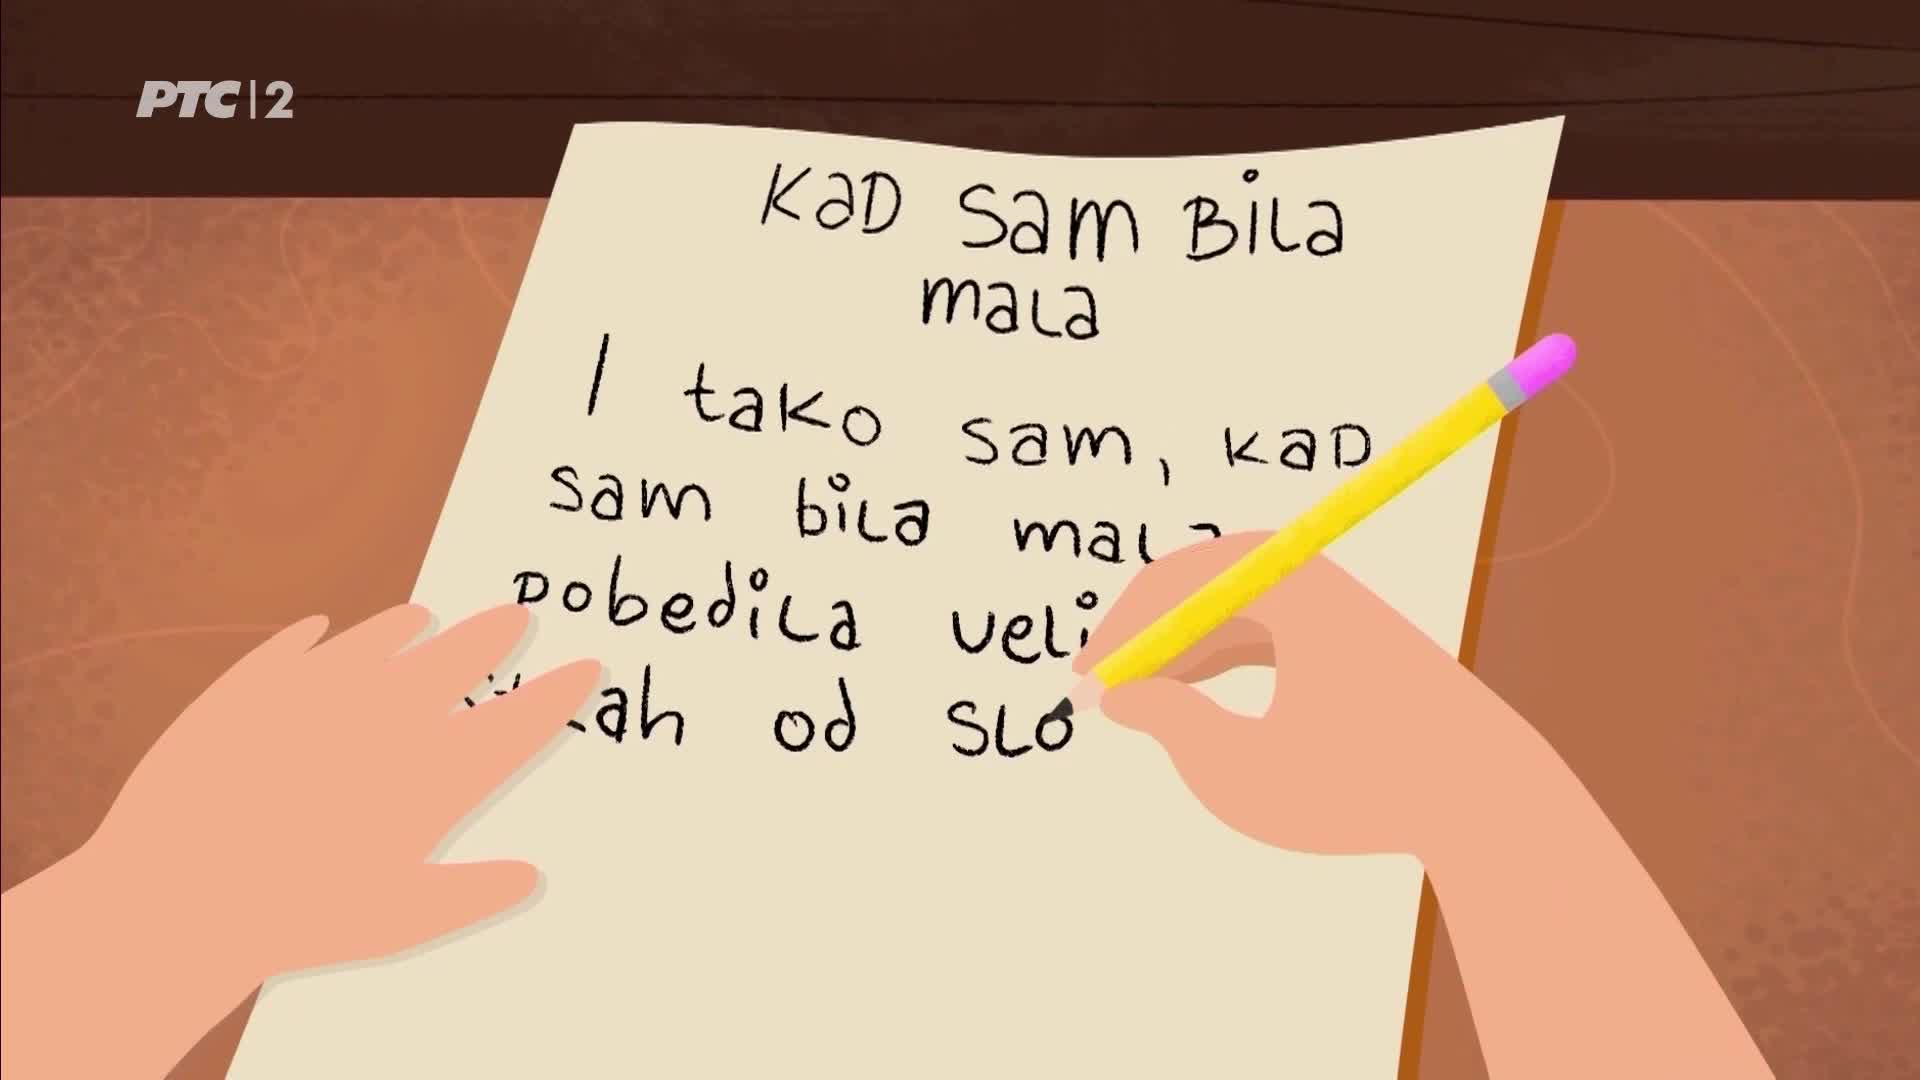 РТС|2
KaD Sam BiLa
maLa
I tako sam, kaD
sam biLa
pobediLa
od SLo